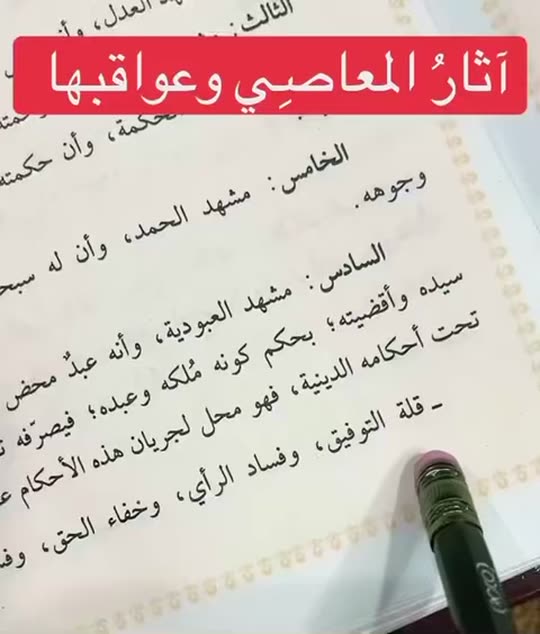 مشهد العدل، وأن
الثالث:
آثارُ المعاصِي وعواقبها
الحكمة، وأن حكمته
الخامس: مشهد الحمد، وأن له سبحا
وجوهه.
السادس: مشهد العبودية، وأنه عبدٌ محض
سيده وأقضيته؛ بحكم كونه مُلكه وعبده؛ فيصرّفه
تحت أحكامه الدينية، فهو محل لجريان هذه الأحكام
- قلة التوفيق، وفساد الرأي، وخفاء الحق، وفس